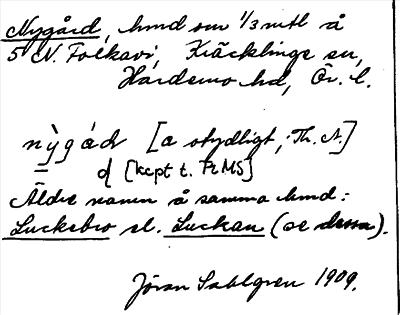 Nygård, hmd om 1/3 mtl å
5 N. Folkavi, Kräcklinge sn,
Hardemo hd, Ör. l.
nỳgáḍ [a otydligt, Th. A.]
ɖ [kcpt t. FrMS]
Äldre namn å samma hmd:
Luckebro el. Luckan (se dessa).
Jöran Sahlgren 1909.